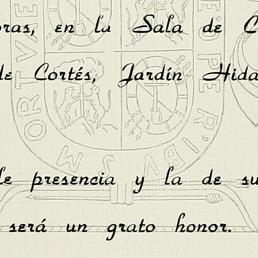 oras, en la Sala de C
de Cortés, Jardín Hida
de presencia y la de su
será un grato honor.